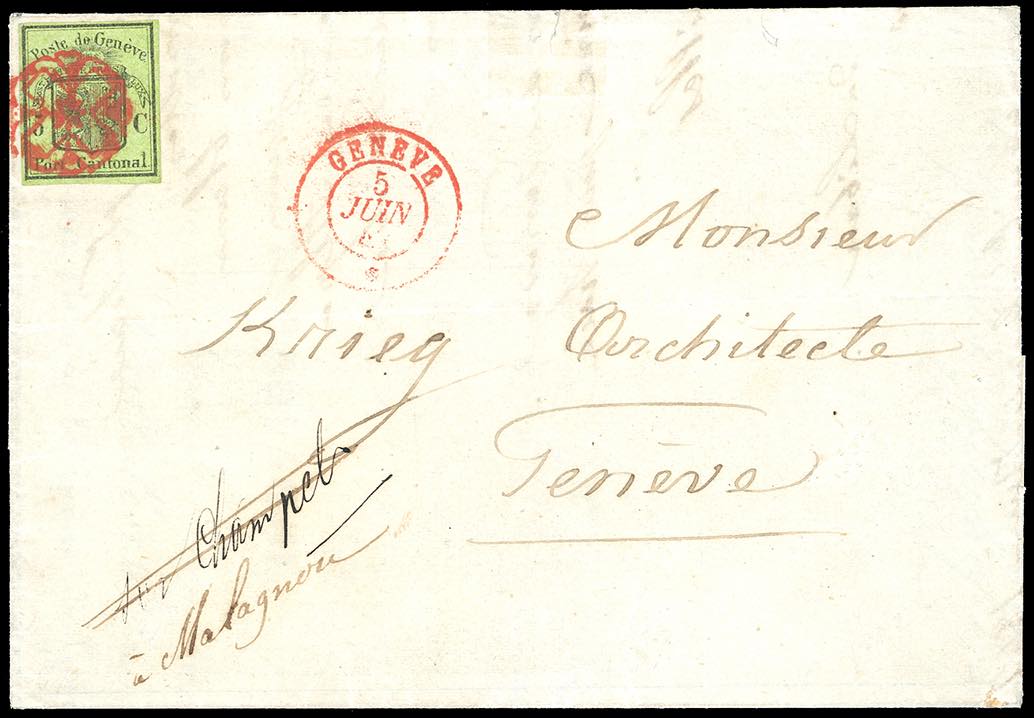 Poste de Genève
5 C
Port Cantonal.
GENEVE
5
JUIN
Monsieur
Krieg Architecte
Genève
Champel
à Malagnou